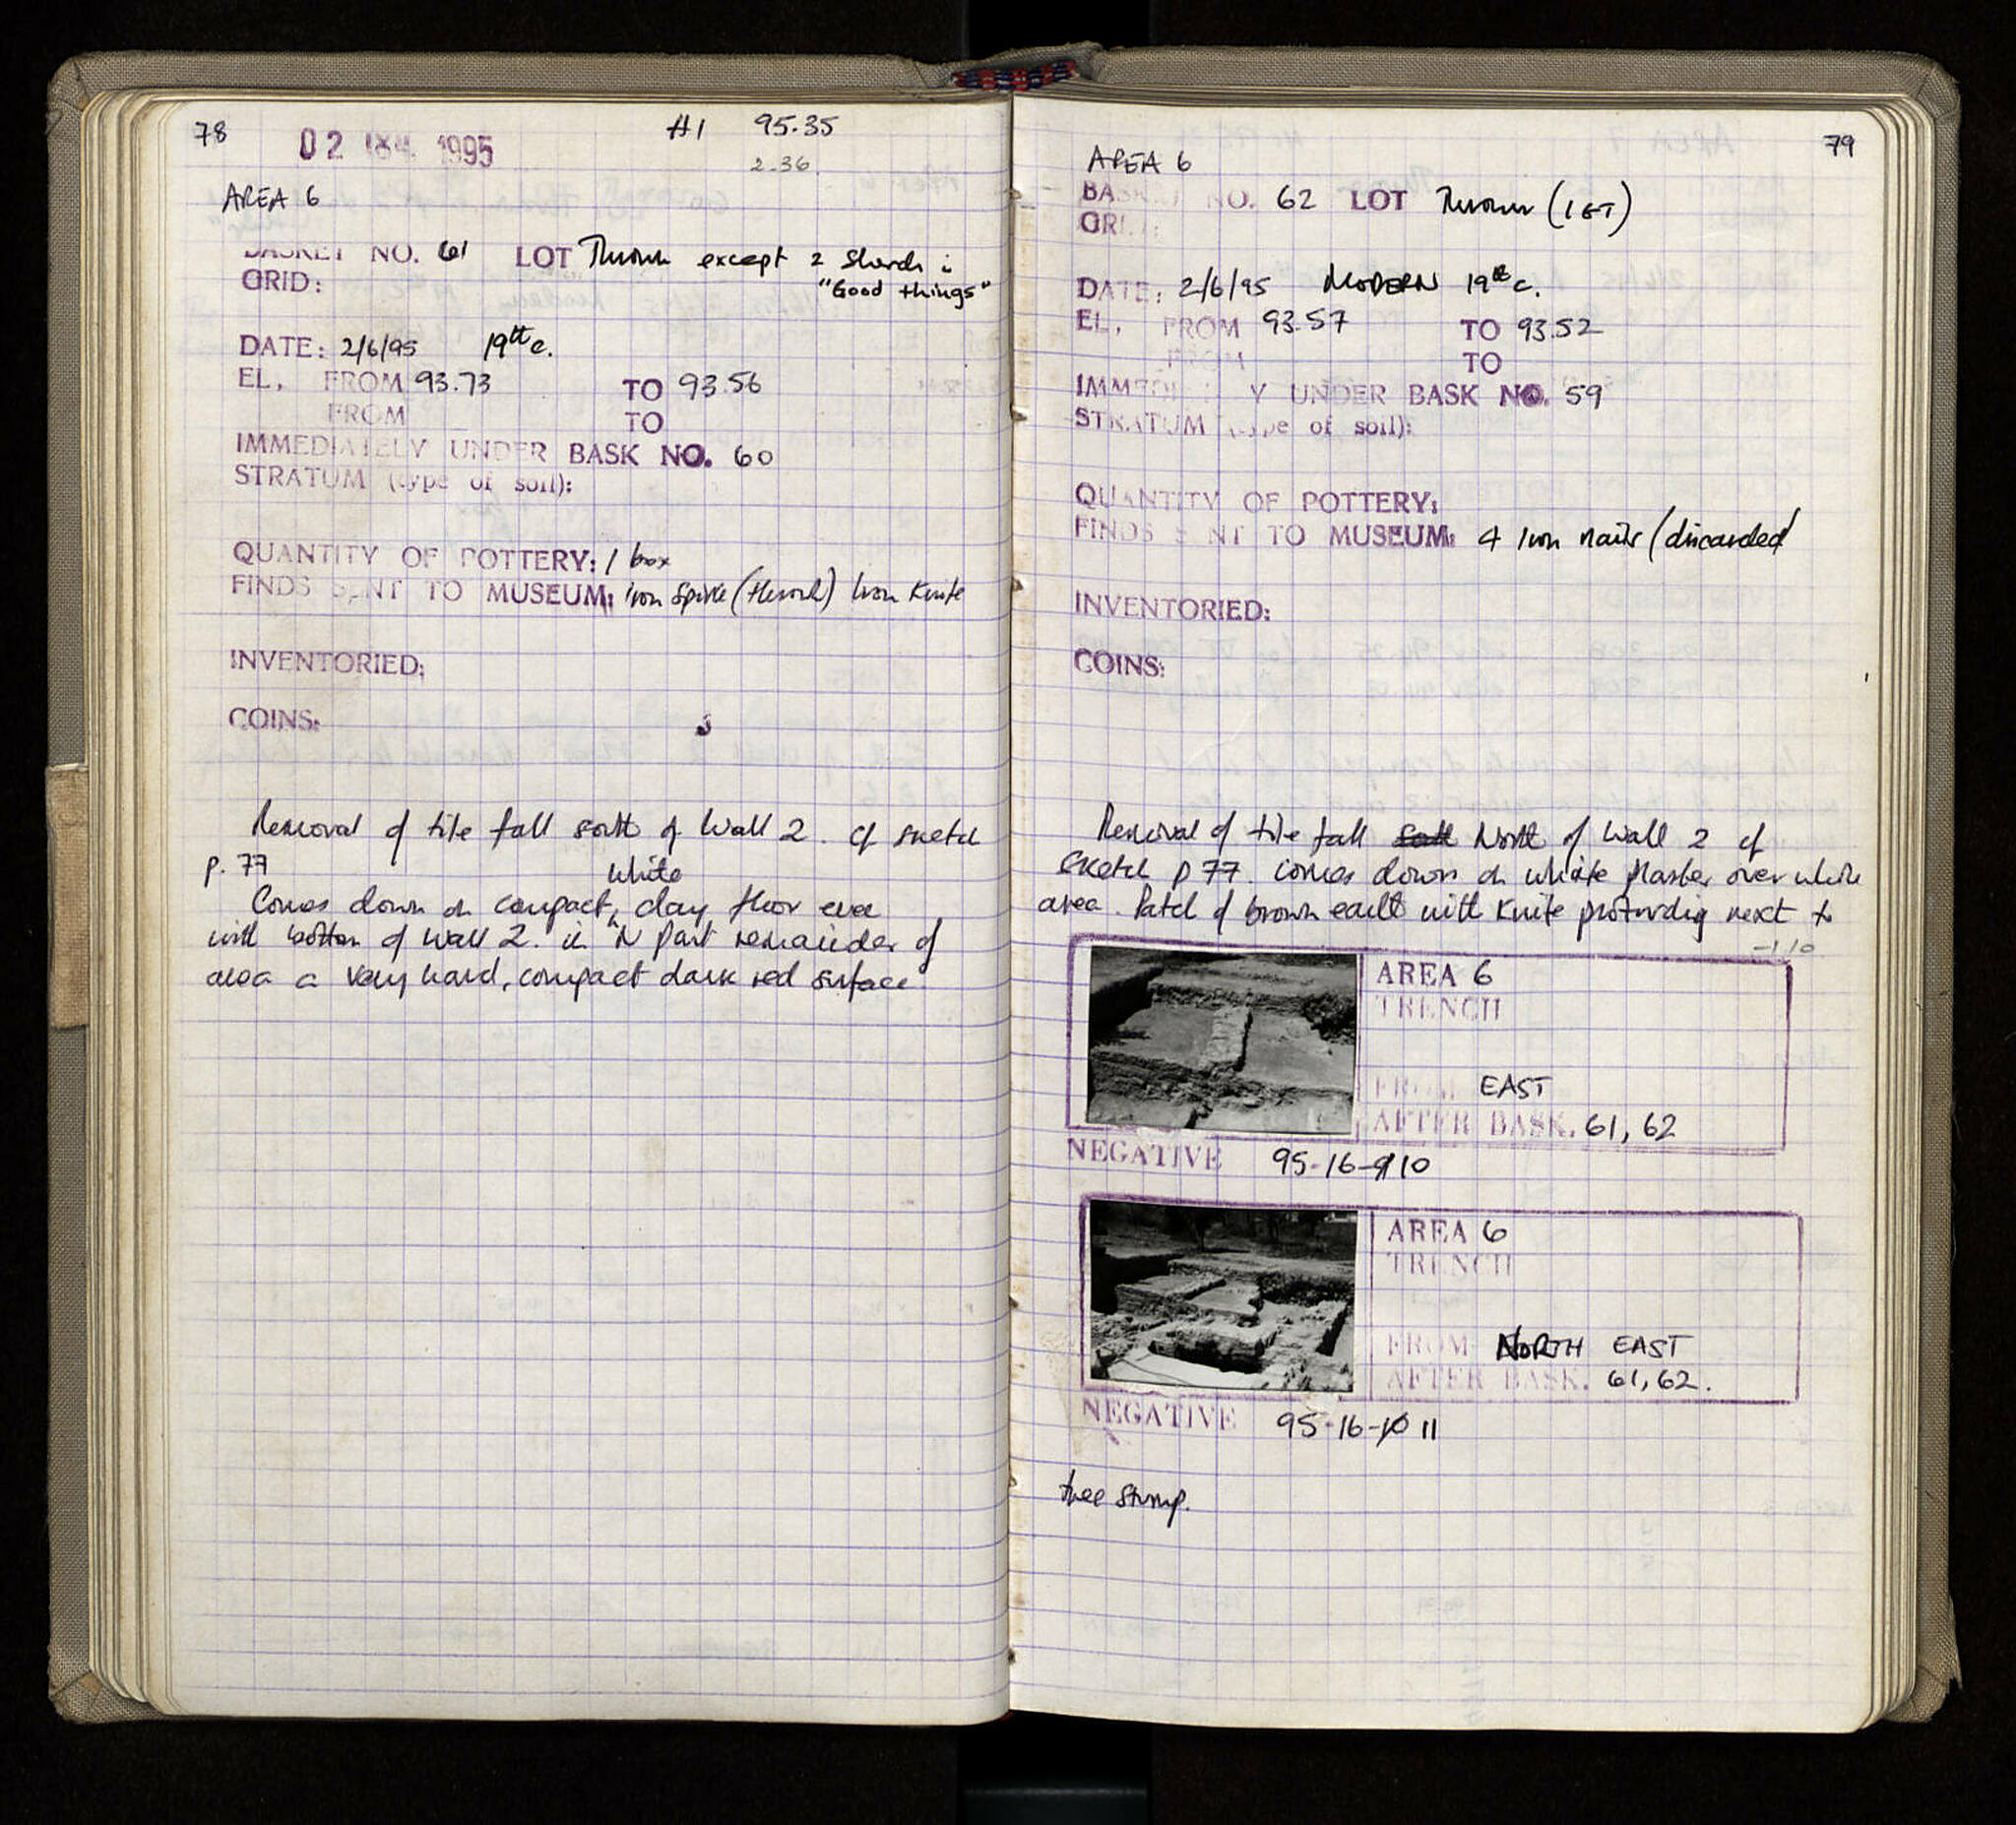 78
02 1995
H1 95.35
2.36.
AREA 6
BASKET NO. 61 LOT Thrown except 2 sherds in
GRID: "Good things"
DATE: 2/6/95 19th c.
EL, FROM 93.73 TO 93.56
FROM TO
IMMEDIATELY UNDER BASK NO. 60
STRATUM (type of soil):
QUANTITY OF POTTERY: 1 box
FINDS SENT TO MUSEUM: iron spike (thrown) Iron Knife
INVENTORIED:
COINS:
Removal of tile fall south of Wall 2. cf sketch
p. 77
white
Comes down on compact, clay floor even
with bottom of Wall 2. in N part remainder of
area a very hard, compact dark red surface
79
AREA 6
BASKET NO. 62 LOT Thrown (1 GT)
GRID:
DATE: 2/6/95 MODERN 19th c.
EL, FROM 93.57 TO 93.52
FROM TO
IMMEDIATELY UNDER BASK NO. 59
STRATUM (type of soil):
QUANTITY OF POTTERY:
FINDS SENT TO MUSEUM: 4 Iron nails (discarded
INVENTORIED:
COINS:
Removal of tile fall south North of Wall 2 cf
sketch p 77. comes down on white plaster over whole
area. Patch of brown earth with knife protruding next to
-1.10
AREA 6
TRENCH
FROM EAST
AFTER BASK. 61, 62
NEGATIVE 95-16-9 10
AREA 6
TRENCH
FROM NORTH EAST
AFTER BASK. 61, 62.
NEGATIVE 95-16-10 11
tree stump.